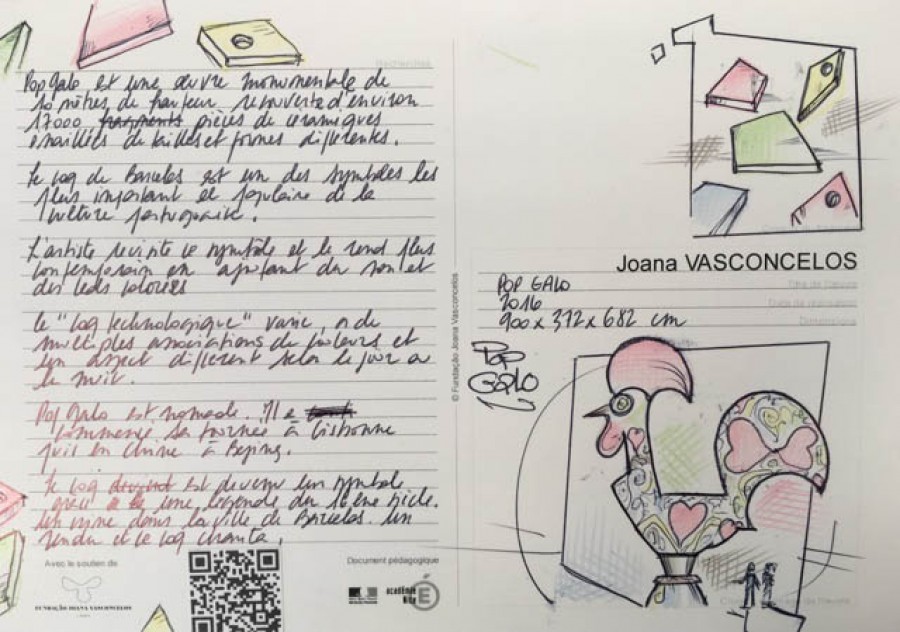 Recherches
Pop Galo est une œuvre monumentale de
10 mètres de hauteur recouverte d'environ
17000 fragments pièces de céramiques
émaillées de tailles et formes différentes.
Le coq de Barcelos est un des symboles les
plus important et populaire de la
culture portugaise.
L'artiste revisite ce symbole et le rend plus
contemporain en ajoutant du son et
des leds colorées
Le "coq technologique" varie, a de
multiples associations de couleurs et
un aspect différent selon le jour ou
la nuit.
Pop Galo est nomade. Il a
commencé sa tournée à Lisbonne
puis en chine à Bejing.
Le coq devient est devenu un symbole
une légende du 16ème siècle.
dans la ville de Barcelos. un
et le coq chanta.
Avec le soutien de
FUNDAÇÃO JOANA VASCONCELOS
Document pédagogique
académie
Nice
© Fundação Joana Vasconcelos
Joana VASCONCELOS
POP GALO
Titre de l'œuvre
2016
Date de réalisation
900 x 372 x 682 cm
Dimensions
POP
GALO